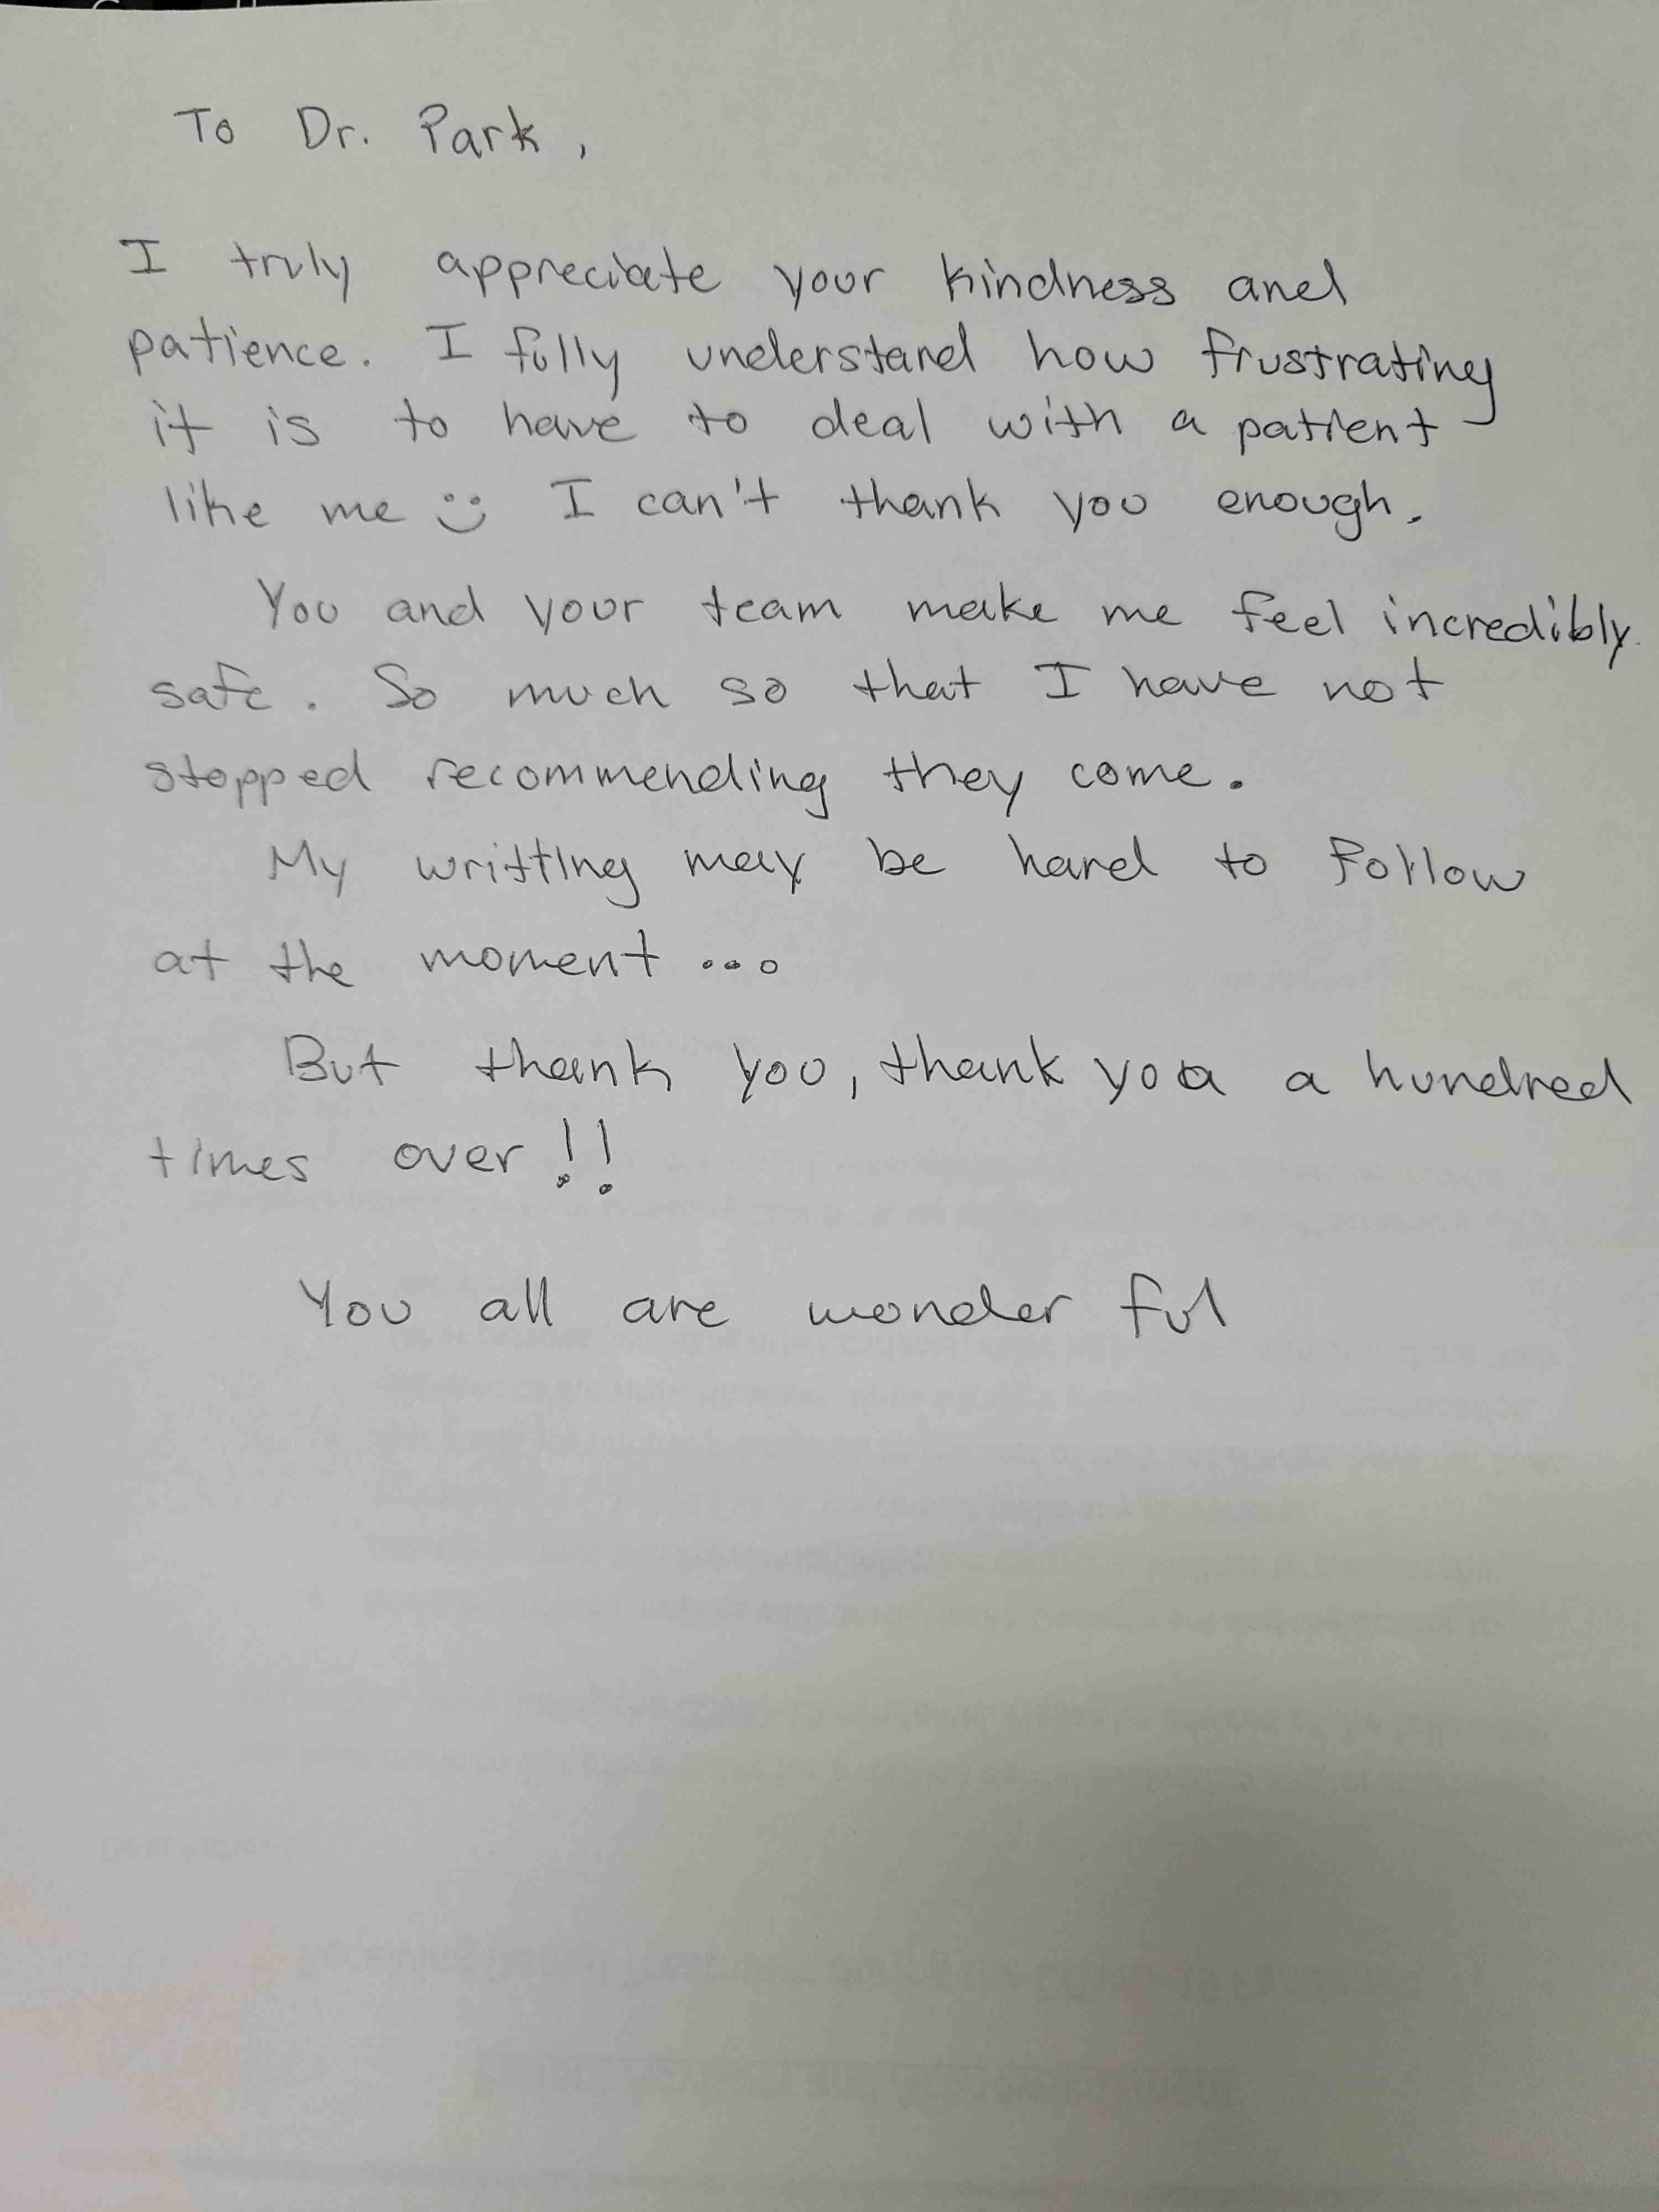 To Dr. Park,
I truly appreciate your kindness and
patience. I fully understand how frustrating
it is to have to deal with a patient
like me I can't thank you enough.
You and your team make me feel incredibly
safe. So much so that I have not
stopped recommending they come.
My writting may be hard to follow
at the moment ...
But thank you, thank you a hundred
times over!!
You all are wonder ful